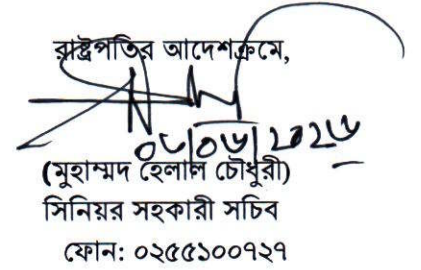 রাষ্ট্রপতির আদেশক্রমে,
০৮/০৬/২০২৬
(মুহাম্মদ হেলাল চৌধুরী)
সিনিয়র সহকারী সচিব
ফোন: ০২৫৫১০০৭২৭